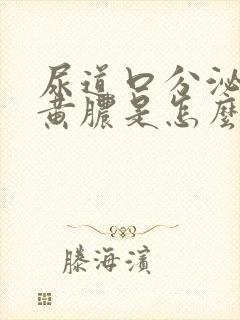 尿道口分泌
黄膿是怎麼
滕海濱